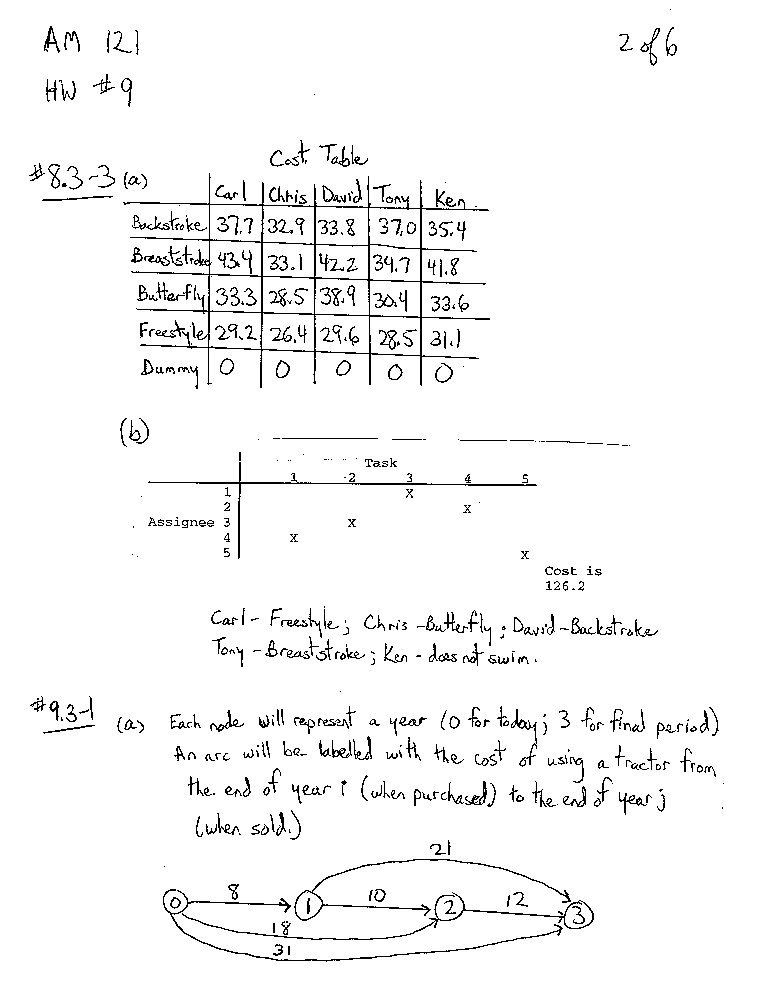 AM 121
2 of 6
HW #9
Cost Table
#8.3-3 (a)
Carl Chris David Tony Ken
Backstroke 37.7 32.9 33.8 37.0 35.4
Breaststroke 43.4 33.1 42.2 34.7 41.8
Butterfly 33.3 28.5 38.9 30.4 33.6
Freestyle 29.2 26.4 29.6 28.5 31.1
Dummy 0 0 0 0 0
(b)
Task
1 2 3 4 5
1 X
2 X
Assignee 3 X
4 X
5 X
Cost is
126.2
Carl - Freestyle; Chris - Butterfly; David - Backstroke
Tony - Breaststroke; Ken - does not swim.
#9.3-1 (a) Each node will represent a year (0 for today; 3 for final period)
An arc will be labelled with the cost of using a tractor from
the end of year i (when purchased) to the end of year j
(when sold.)
21
8 10 12
0 1 2 3
18
31